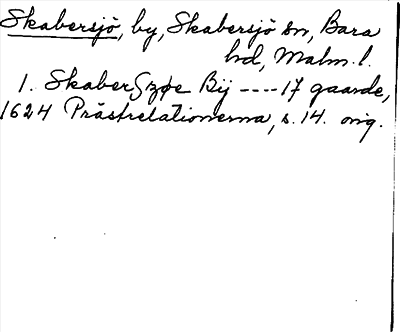 Skabersjö, by, Skabersjö sn, Bara
hd, Malm. l.
1. Skaber Szøe Bÿ ---- 17 gaarde,
1624 Prästrelationerna, s. 14. orig.